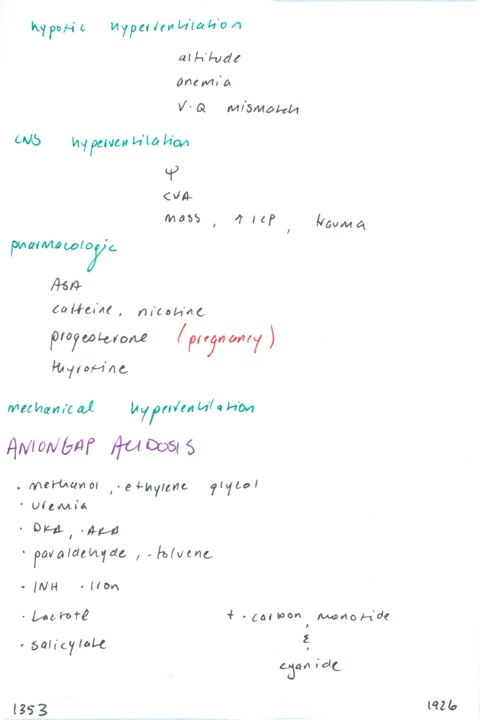 hypotic hyperventilation
altitude
anemia
V-Q mismatch
CNS hyperventilation
Ψ
CVA
mass, ↑ICP, trauma
pharmacologic
ASA
caffeine, nicotine
progesterone (pregnancy)
thyroxine
mechanical hyperventilation
ANION GAP ACIDOSIS
· methanol, · ethylene glycol
· uremia
· DKA, · AKA
· paraldehyde, · toluene
· INH · Iron
· Lactate
· salicylate
+ · carbon monoxide
&
cyanide
1353
1926